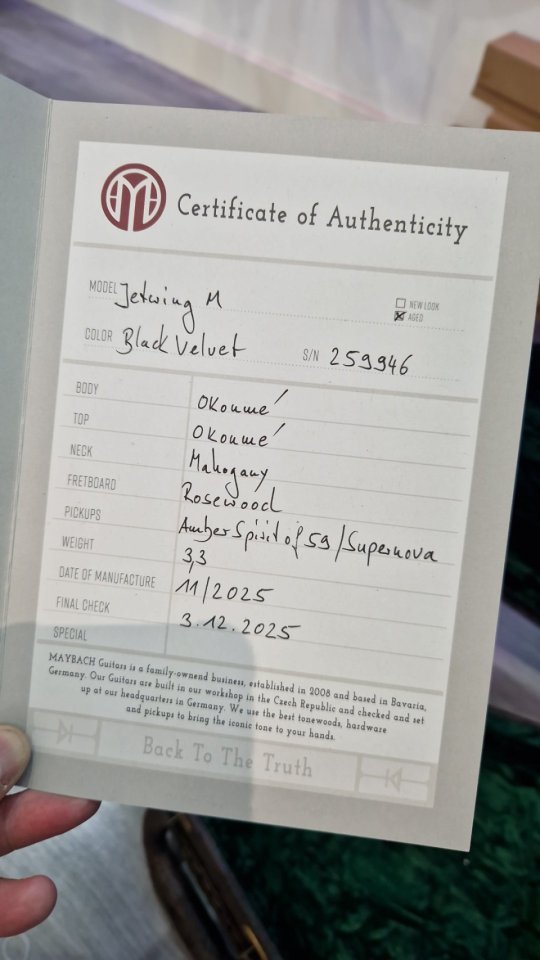 Certificate of Authenticity
MODEL Jetwing M
NEW LOOK
AGED
COLOR Black Velvet S/N 259946
BODY Okoumé
TOP Okoumé
NECK Mahogany
FRETBOARD Rosewood
PICKUPS Amber Spirit of 59/Supernova
WEIGHT 3,3
DATE OF MANUFACTURE 11/2025
FINAL CHECK 3.12.2025
SPECIAL
MAYBACH Guitars is a family-ownend business, established in 2008 and based in Bavaria,
Germany. Our Guitars are built in our workshop in the Czech Republic and checked and set
up at our headquarters in Germany. We use the best tonewoods, hardware
and pickups to bring the iconic tone to your hands.
Back To The Truth